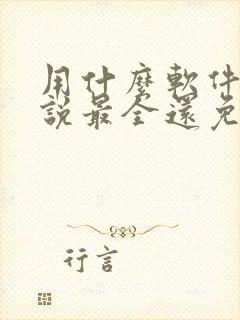 用什麼軟件
說最全還免
行言